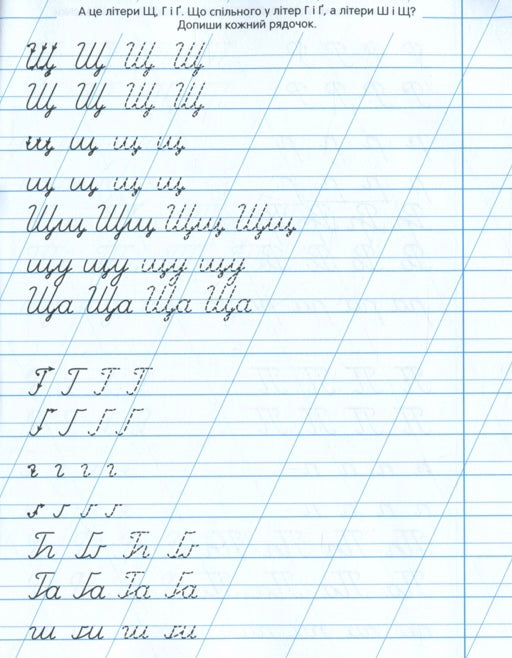 А це літери Щ, Г і Ґ. Що спільного у літер Г і Ґ, а літери Ш і Щ?
Допиши кожний рядочок.
Щ Щ Щ Щ
Щ Щ Щ Щ
щ щ щ щ
щ щ щ щ
Щщ Щщ Щщ Щщ
щу щу щу щу
Ща Ща Ща Ща
Г Г Г Г
Ґ Ґ Ґ Ґ
г г г г
ґ ґ ґ ґ
Гг Ґґ Гг Ґґ
Га Ґа Га Ґа
ги ґи ги ґи